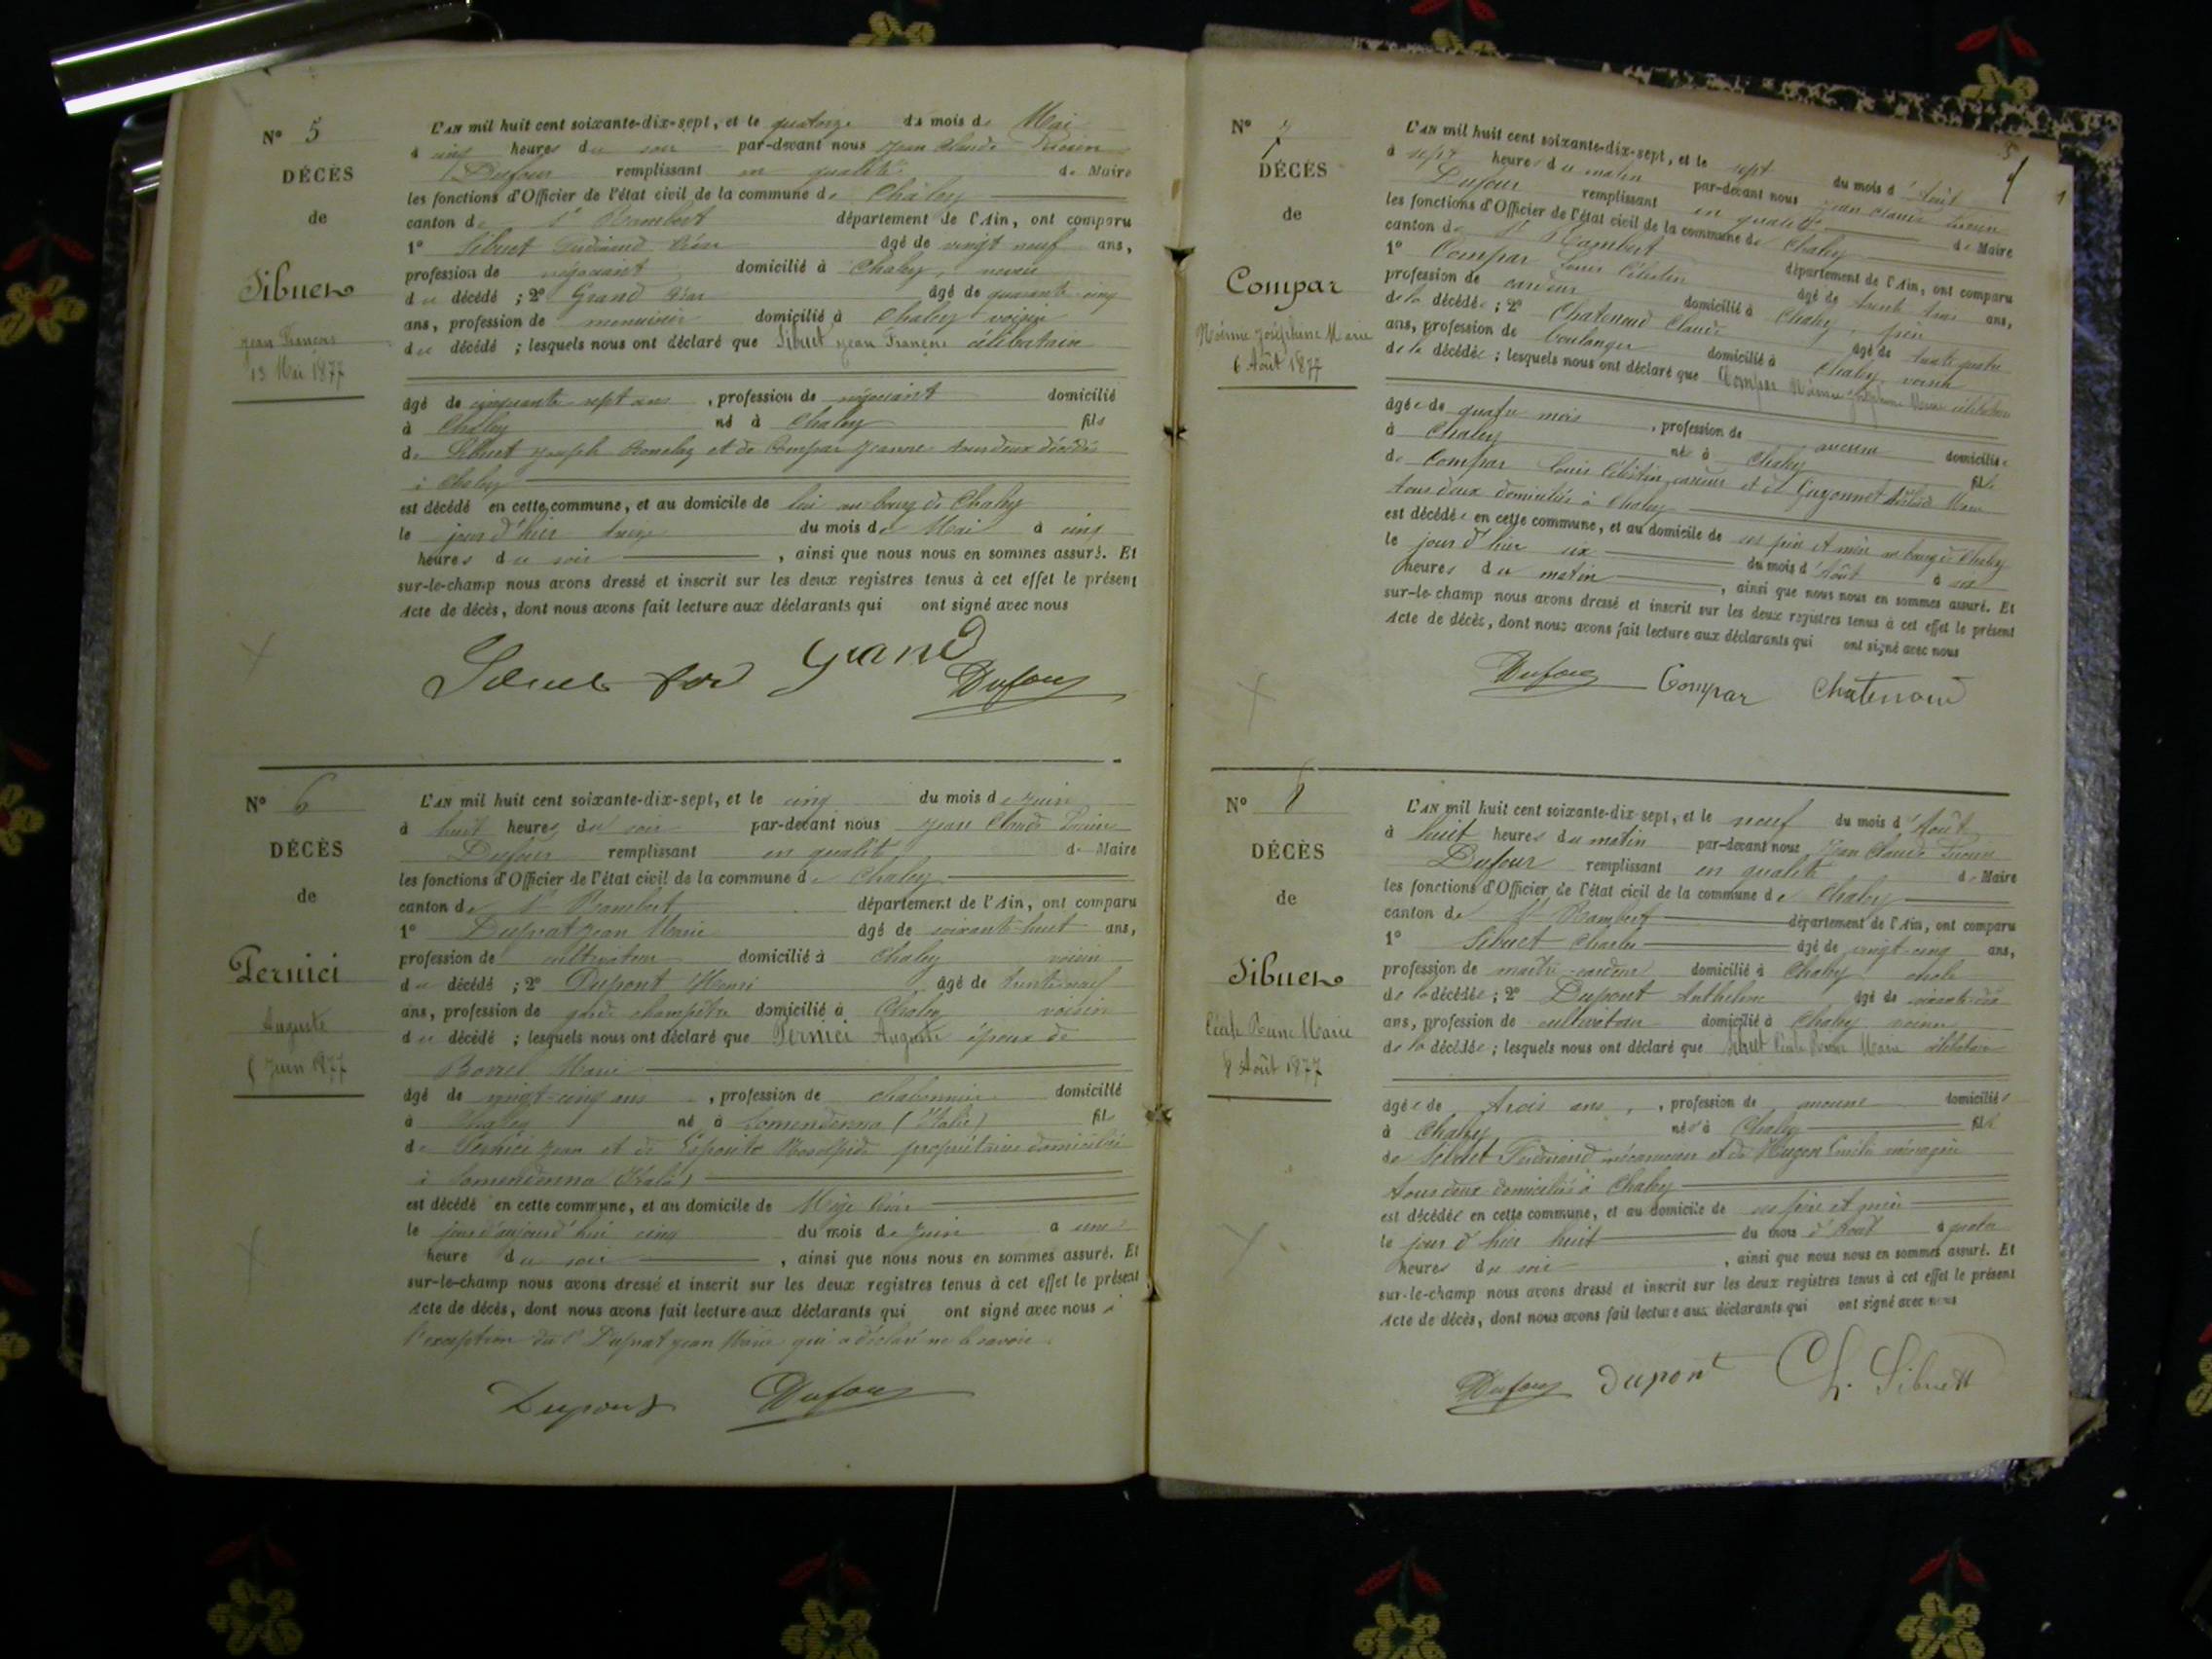 N° 5
DÉCÈS
de
Sibuet
Jean François
13 Mai 1877
L'AN mil huit cent soixante-dix-sept, et le quatorze du mois de Mai
à cinq heures du soir par-devant nous Jean Claude
Dufour remplissant en qualité de Maire
les fonctions d'Officier de l'état civil de la commune de Chaley
canton de St Rambert département de l'Ain, ont comparu
1° Sibuet Ferdinand âgé de vingt neuf ans,
profession de négociant domicilié à Chaley, neveu
du décédé ; 2° Grand âgé de quarante cinq
ans, profession de menuisier domicilié à Chaley voisin
du décédé ; lesquels nous ont déclaré que Sibuet Jean François célibataire
âgé de cinquante sept ans, profession de négociant domicilié
à Chaley né à Chaley fils
de Sibuet Joseph et de Compar Jeanne tous deux décédés
à Chaley
est décédé en cette commune, et au domicile de lui au bourg de Chaley
le jour d'hier treize du mois de Mai à cinq
heures du soir, ainsi que nous nous en sommes assuré. Et
sur-le-champ nous avons dressé et inscrit sur les deux registres tenus à cet effet le présent
Acte de décès, dont nous avons fait lecture aux déclarants qui ont signé avec nous
Grand
Dufour
N° 6
DÉCÈS
de
Pernici
Auguste
5 Juin 1877
L'AN mil huit cent soixante-dix-sept, et le cinq du mois de Juin
à huit heures du soir par-devant nous Jean Claude
Dufour remplissant en qualité de Maire
les fonctions d'Officier de l'état civil de la commune de Chaley
canton de St Rambert département de l'Ain, ont comparu
1° Duprat Jean Marie âgé de soixante-huit ans,
profession de cultivateur domicilié à Chaley voisin
du décédé ; 2° Dupont Henri âgé de trente neuf
ans, profession de garde champêtre domicilié à Chaley voisin
du décédé ; lesquels nous ont déclaré que Pernici Auguste époux de
Borrel Marie
âgé de vingt-cinq ans, profession de charbonnier domicilié
à Chaley né à Somendenna (Italie) fils
de Pernici Jean et de propriétaires domiciliés
à Somendenna (Italie)
est décédé en cette commune, et au domicile de
le jour d'aujourd'hui cinq du mois de Juin à une
heure du soir, ainsi que nous nous en sommes assuré. Et
sur-le-champ nous avons dressé et inscrit sur les deux registres tenus à cet effet le présent
Acte de décès, dont nous avons fait lecture aux déclarants qui ont signé avec nous à
l'exception du Sr Duprat Jean Marie qui a déclaré ne le savoir.
Dupont Dufour
N° 7
DÉCÈS
de
Compar
Noémie Joséphine Marie
6 Août 1877
L'AN mil huit cent soixante-dix-sept, et le sept du mois d'Août
à sept heures du matin par-devant nous Jean Claude
Dufour remplissant en qualité de Maire
les fonctions d'Officier de l'état civil de la commune de Chaley
canton de St Rambert département de l'Ain, ont comparu
1° Compar Louis Célestin âgé de trente trois ans,
profession de cardeur domicilié à Chaley, père
de la décédée ; 2° Chatenoud Claude âgé de trente quatre
ans, profession de boulanger domicilié à Chaley voisin
de la décédée ; lesquels nous ont déclaré que Compar Noémie Joséphine Marie célibataire
âgée de quatre mois, profession de aucune domiciliée
à Chaley née à Chaley fille
de Compar Louis Célestin cardeur et de Guyonnet
tous deux domiciliés à Chaley
est décédée en cette commune, et au domicile de ses père et mère au bourg de Chaley
le jour d'hier six du mois d'Août à
heures du matin, ainsi que nous nous en sommes assuré. Et
sur-le-champ nous avons dressé et inscrit sur les deux registres tenus à cet effet le présent
Acte de décès, dont nous avons fait lecture aux déclarants qui ont signé avec nous
Dufour Compar Chatenoud
N° 8
DÉCÈS
de
Sibuet
Marie
8 Août 1877
L'AN mil huit cent soixante-dix-sept, et le neuf du mois d'Août
à huit heures du matin par-devant nous Jean Claude
Dufour remplissant en qualité de Maire
les fonctions d'Officier de l'état civil de la commune de Chaley
canton de St Rambert département de l'Ain, ont comparu
1° Sibuet Charles âgé de vingt-cinq ans,
profession de maître-cardeur domicilié à Chaley oncle
de la décédée ; 2° Dupont Anthelme âgé de
ans, profession de cultivateur domicilié à Chaley voisin
de la décédée ; lesquels nous ont déclaré que Sibuet Marie célibataire
âgée de trois ans, profession de aucune domiciliée
à Chaley née à Chaley fille
de Sibuet Ferdinand mécanicien et de ménagère
tous deux domiciliés à Chaley
est décédée en cette commune, et au domicile de ses père et mère
le jour d'hier huit du mois d'Août à quatre
heures du soir, ainsi que nous nous en sommes assuré. Et
sur-le-champ nous avons dressé et inscrit sur les deux registres tenus à cet effet le présent
Acte de décès, dont nous avons fait lecture aux déclarants qui ont signé avec nous
Dufour Dupont Ch. Sibuet